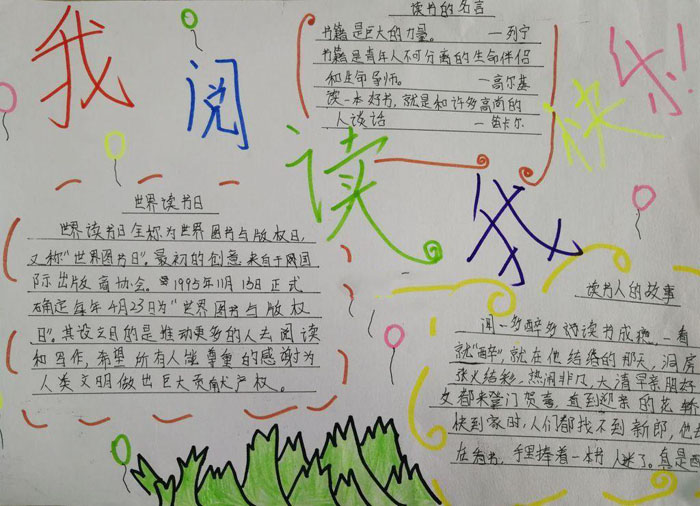 我阅读我快乐!
读书的名言
书籍是巨大的力量。 —列宁
书籍是青年人不可分离的生命伴侣
和生命导师。 —高尔基
读一本好书,就是和许多高尚的
人谈话 —笛卡尔
世界读书日
世界读书日全称为世界图书与版权日,
又称"世界图书日"。最初的创意来自于
国际出版商协会。1995年11月15日正式
确定每年4月23日为"世界图书与版权
日"。其设立目的是推动更多的人去阅读
和写作,希望所有人能尊重的感谢为
人类文明做出巨大贡献产权。
读书人的故事
闻一多醉多 读书成瘾,一看
就"醉",就在他结婚的那天,洞房
张灯结彩,热闹非凡,大清早亲朋好
友都来登门贺喜,直到迎亲的花轿
快到家时,人们都找不到新郎,他
在看书,手里捧着一本书入迷了。真是